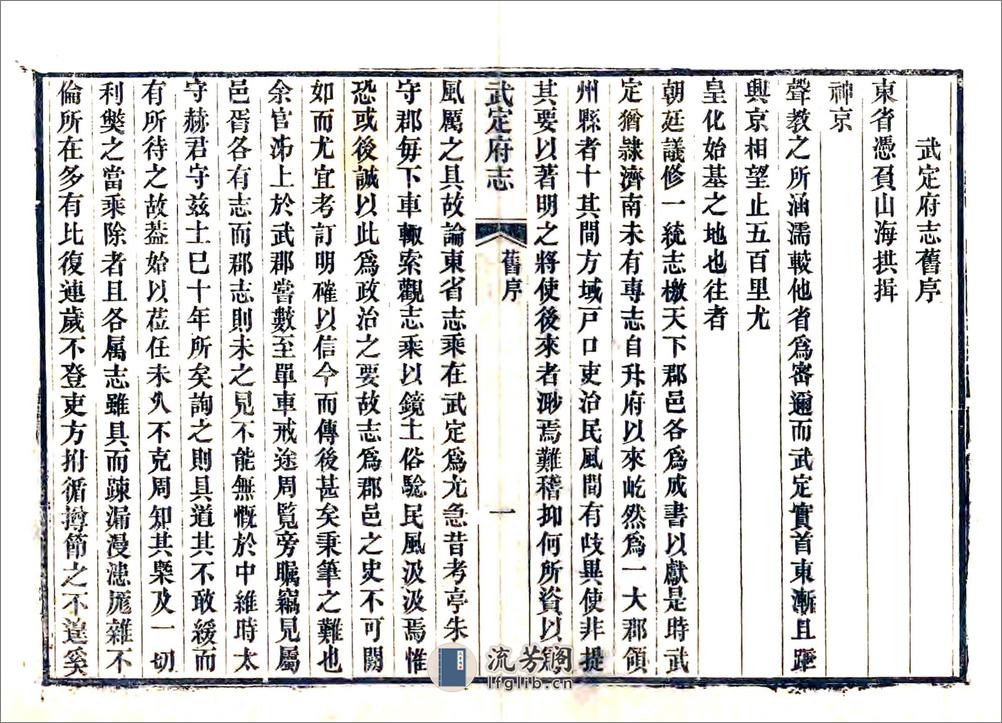 武定府志舊序
東省憑負山海拱揖
神京
聲教之所涵濡較他省爲密邇而武定實首東漸且距
興京相望止五百里尤
皇化始基之地也往者
朝廷議修一統志檄天下郡邑各爲成書以獻是時武
定猶隷濟南未有專志自升府以來屹然爲一大郡領
州縣者十其間方域戸口吏治民風間有歧異使非提
其要以著明之將使後來者渺焉難稽抑何所資以爲
武定府志
舊序
一
風厲之具故論東省志乘在武定爲尤急昔考亭朱
守郡每下車輙索觀志乘以鏡土俗騐民風汲汲焉惟
恐或後誠以此爲政治之要故志爲郡邑之史不可闕
如而尤宜考訂明確以信今而傳後甚矣秉筆之難也
余官沛上於武郡嘗數至單車戒途周覧旁矚竊見屬
邑胥各有志而郡志則未之見不能無慨於中維時太
守赫君守玆土巳十年所矣詢之則具道其不敢緩而
有所待之故葢始以莅任未久不克周知其槩及一切
利獘之當乘除者且各属志雖具而踈漏漫漶厖雜不
倫所在多有比復連歲不登吏方拊循撙節之不遑奚
流芳閣
lfglib.cn